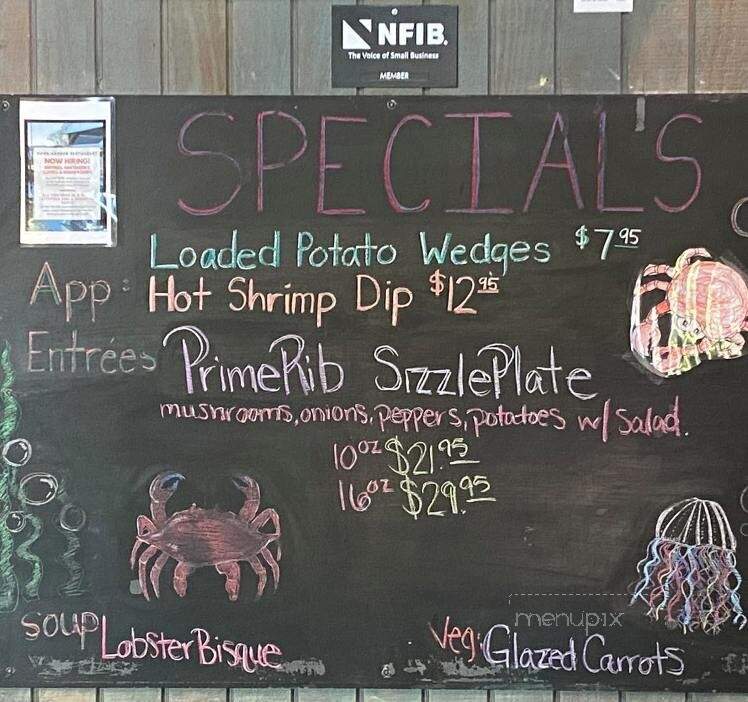 NFIB.
The Voice of Small Business
MEMBER
NOW HIRING!
SPECIALS
Loaded Potato Wedges $7.95
App: Hot Shrimp Dip $12.95
Entrées PrimeRib SizzlePlate
mushrooms, onions, peppers, potatoes w/ Salad.
10oz $21.95
16oz $29.95
menupix
Soup Lobster Bisque
Veg: Glazed Carrots